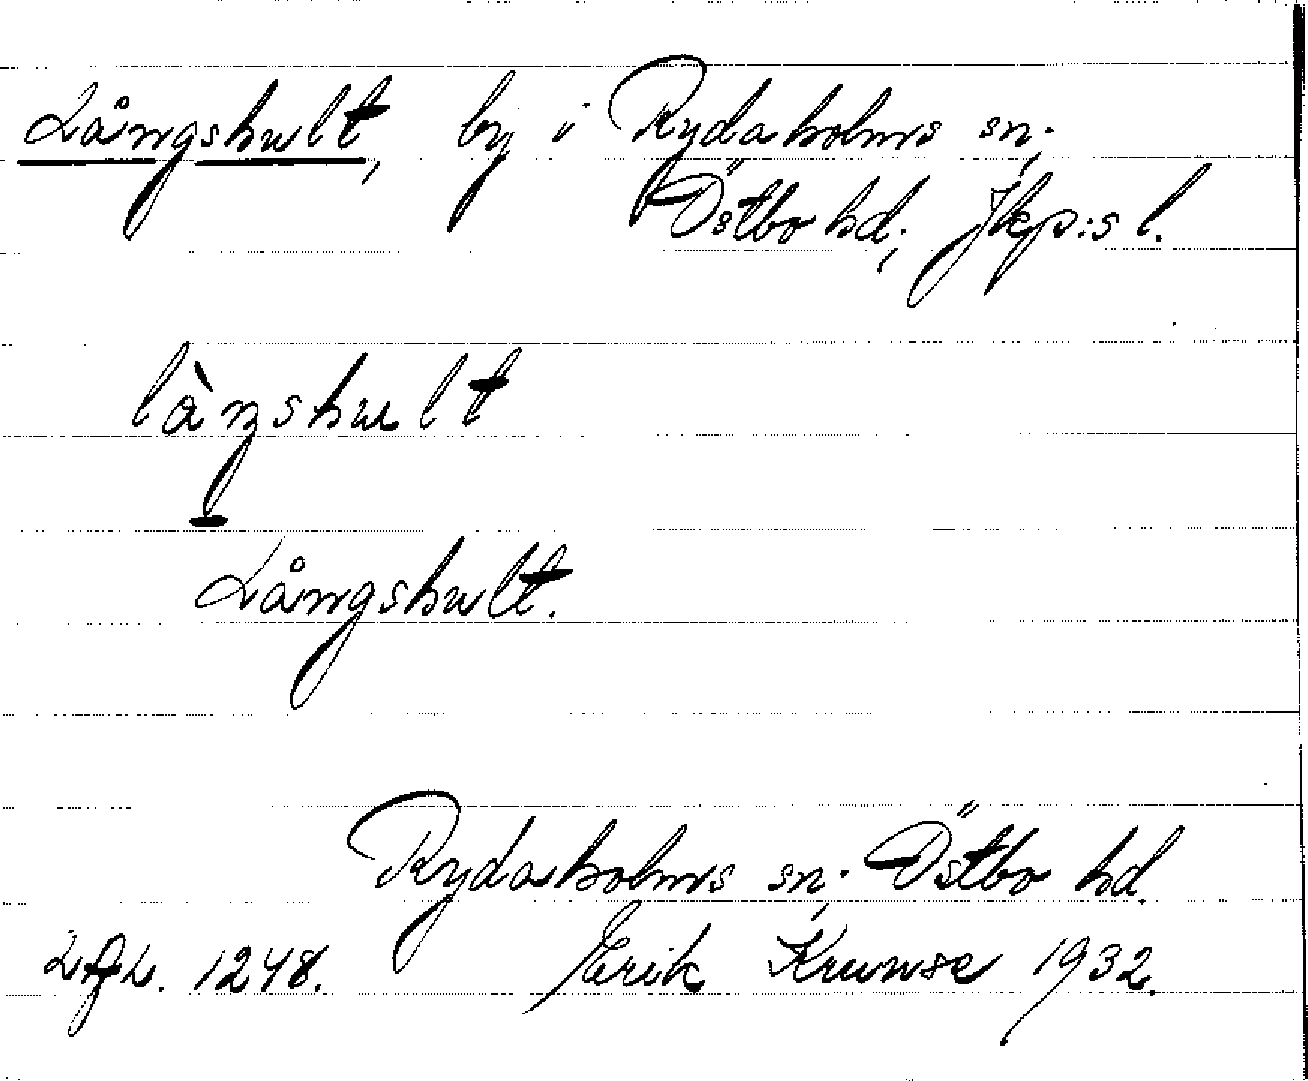 Långshult, by i Rydaholms sn;
Östbo hd; Jkp:s l.
làŋshult
Långshult.
Rydaholms sn; Östbo hd.
1248. Erik 1932.